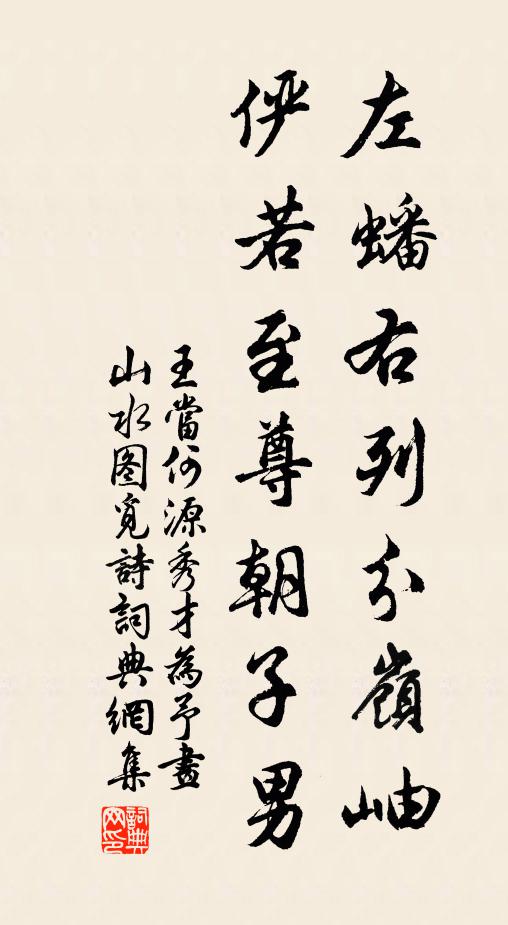 左蟠右列分嶺岫
儼若至尊朝子男
王當何源秀才為予畫
山水图覓詩詞典網集
詞典网印